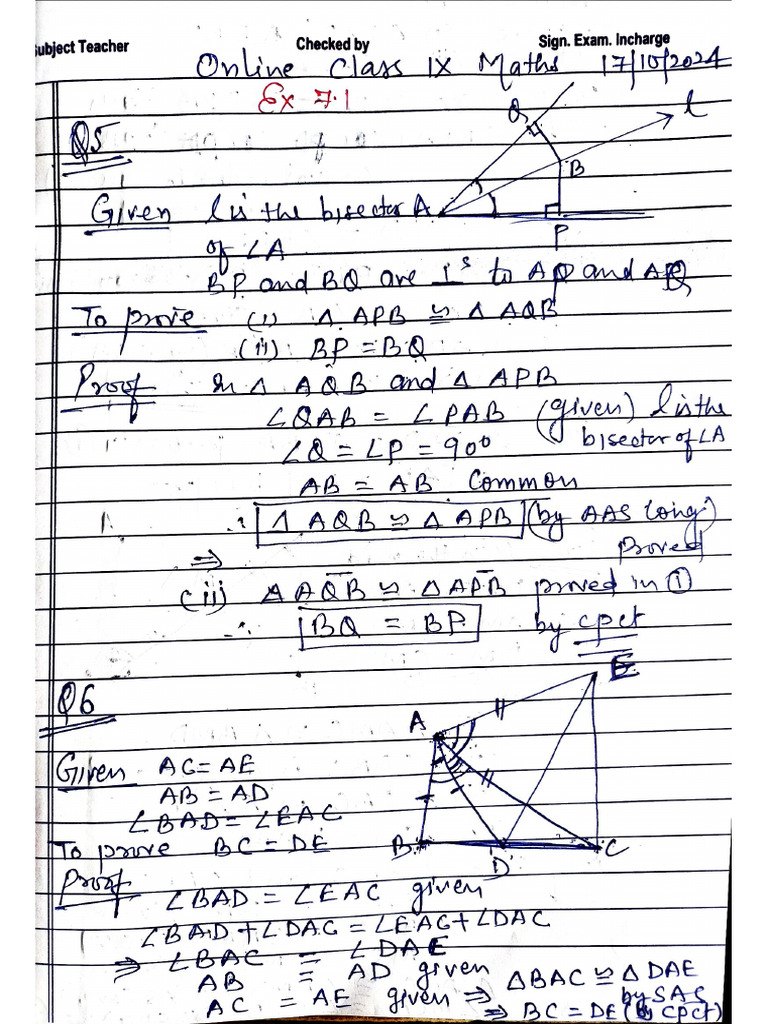 Subject Teacher Checked by Sign. Exam. Incharge
Online Class IX Maths 17/10/2024
Ex 7.1
Q5
Q l
B
A
P
Given l is the bisector
of ∠A
BP and BQ are ⊥s to AP and AQ
To prove (i) △ APB ≅ △ AQB
(ii) BP = BQ
Proof In △ AQB and △ APB
∠QAB = ∠PAB (given) l is the
bisector of ∠A
∠Q = ∠P = 90°
AB = AB Common
∴ △ AQB ≅ △ APB (by AAS Cong.)
Proved
⇒
(ii) △ AQB ≅ △ APB proved in ①
∴ BQ = BP by cpct
Q6
E
A
B D C
Given AC = AE
AB = AD
∠BAD = ∠EAC
To prove BC = DE
Proof
∠BAD = ∠EAC given
∠BAD + ∠DAC = ∠EAC + ∠DAC
⇒ ∠BAC = ∠DAE
AB = AD given
AC = AE given ⇒ △BAC ≅ △DAE
by SAS
⇒ BC = DE (by CPCT)